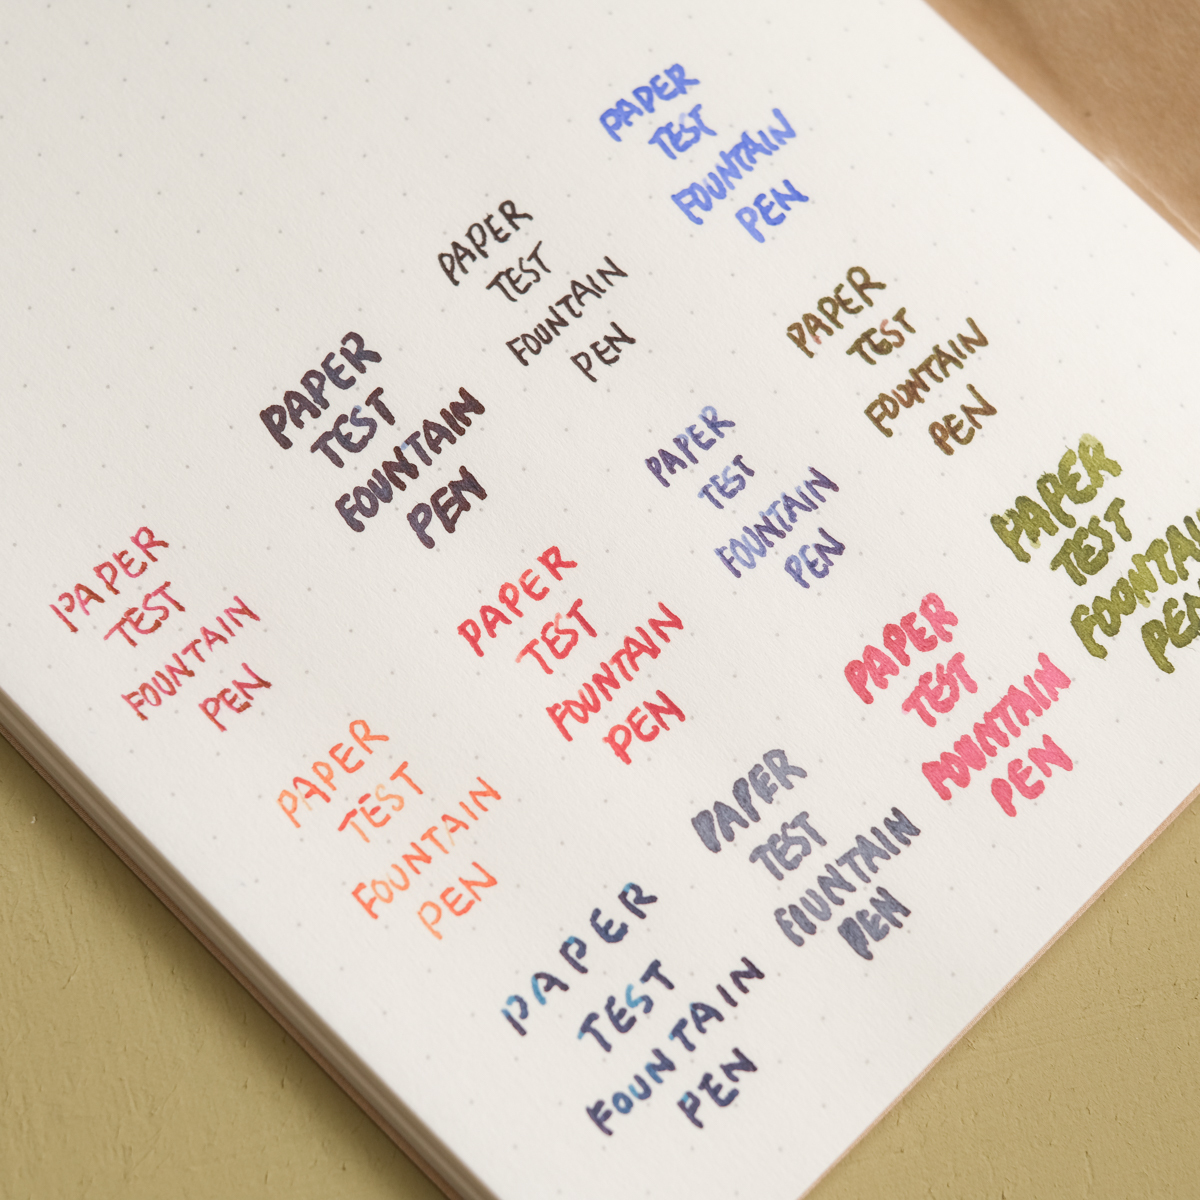 PAPER
TEST
FOUNTAIN
PEN
PAPER
TEST
FOUNTAIN
PEN
PAPER
TEST
FOUNTAIN
PEN
PAPER
TEST
FOUNTAIN
PEN
PAPER
TEST
FOUNTAIN
PEN
PAPER
TEST
FOUNTAIN
PEN
PAPER
TEST
FOUNTAIN
PEN
PAPER
TEST
FOONTAIN
PEN
PAPER
TEST
FOUNTAIN
PEN
PAPER
TEST
FOUNTAIN
PEN
PAPER
TEST
FOUNTAIN
PEN
PAPER
TEST
FOUNTAIN
PEN